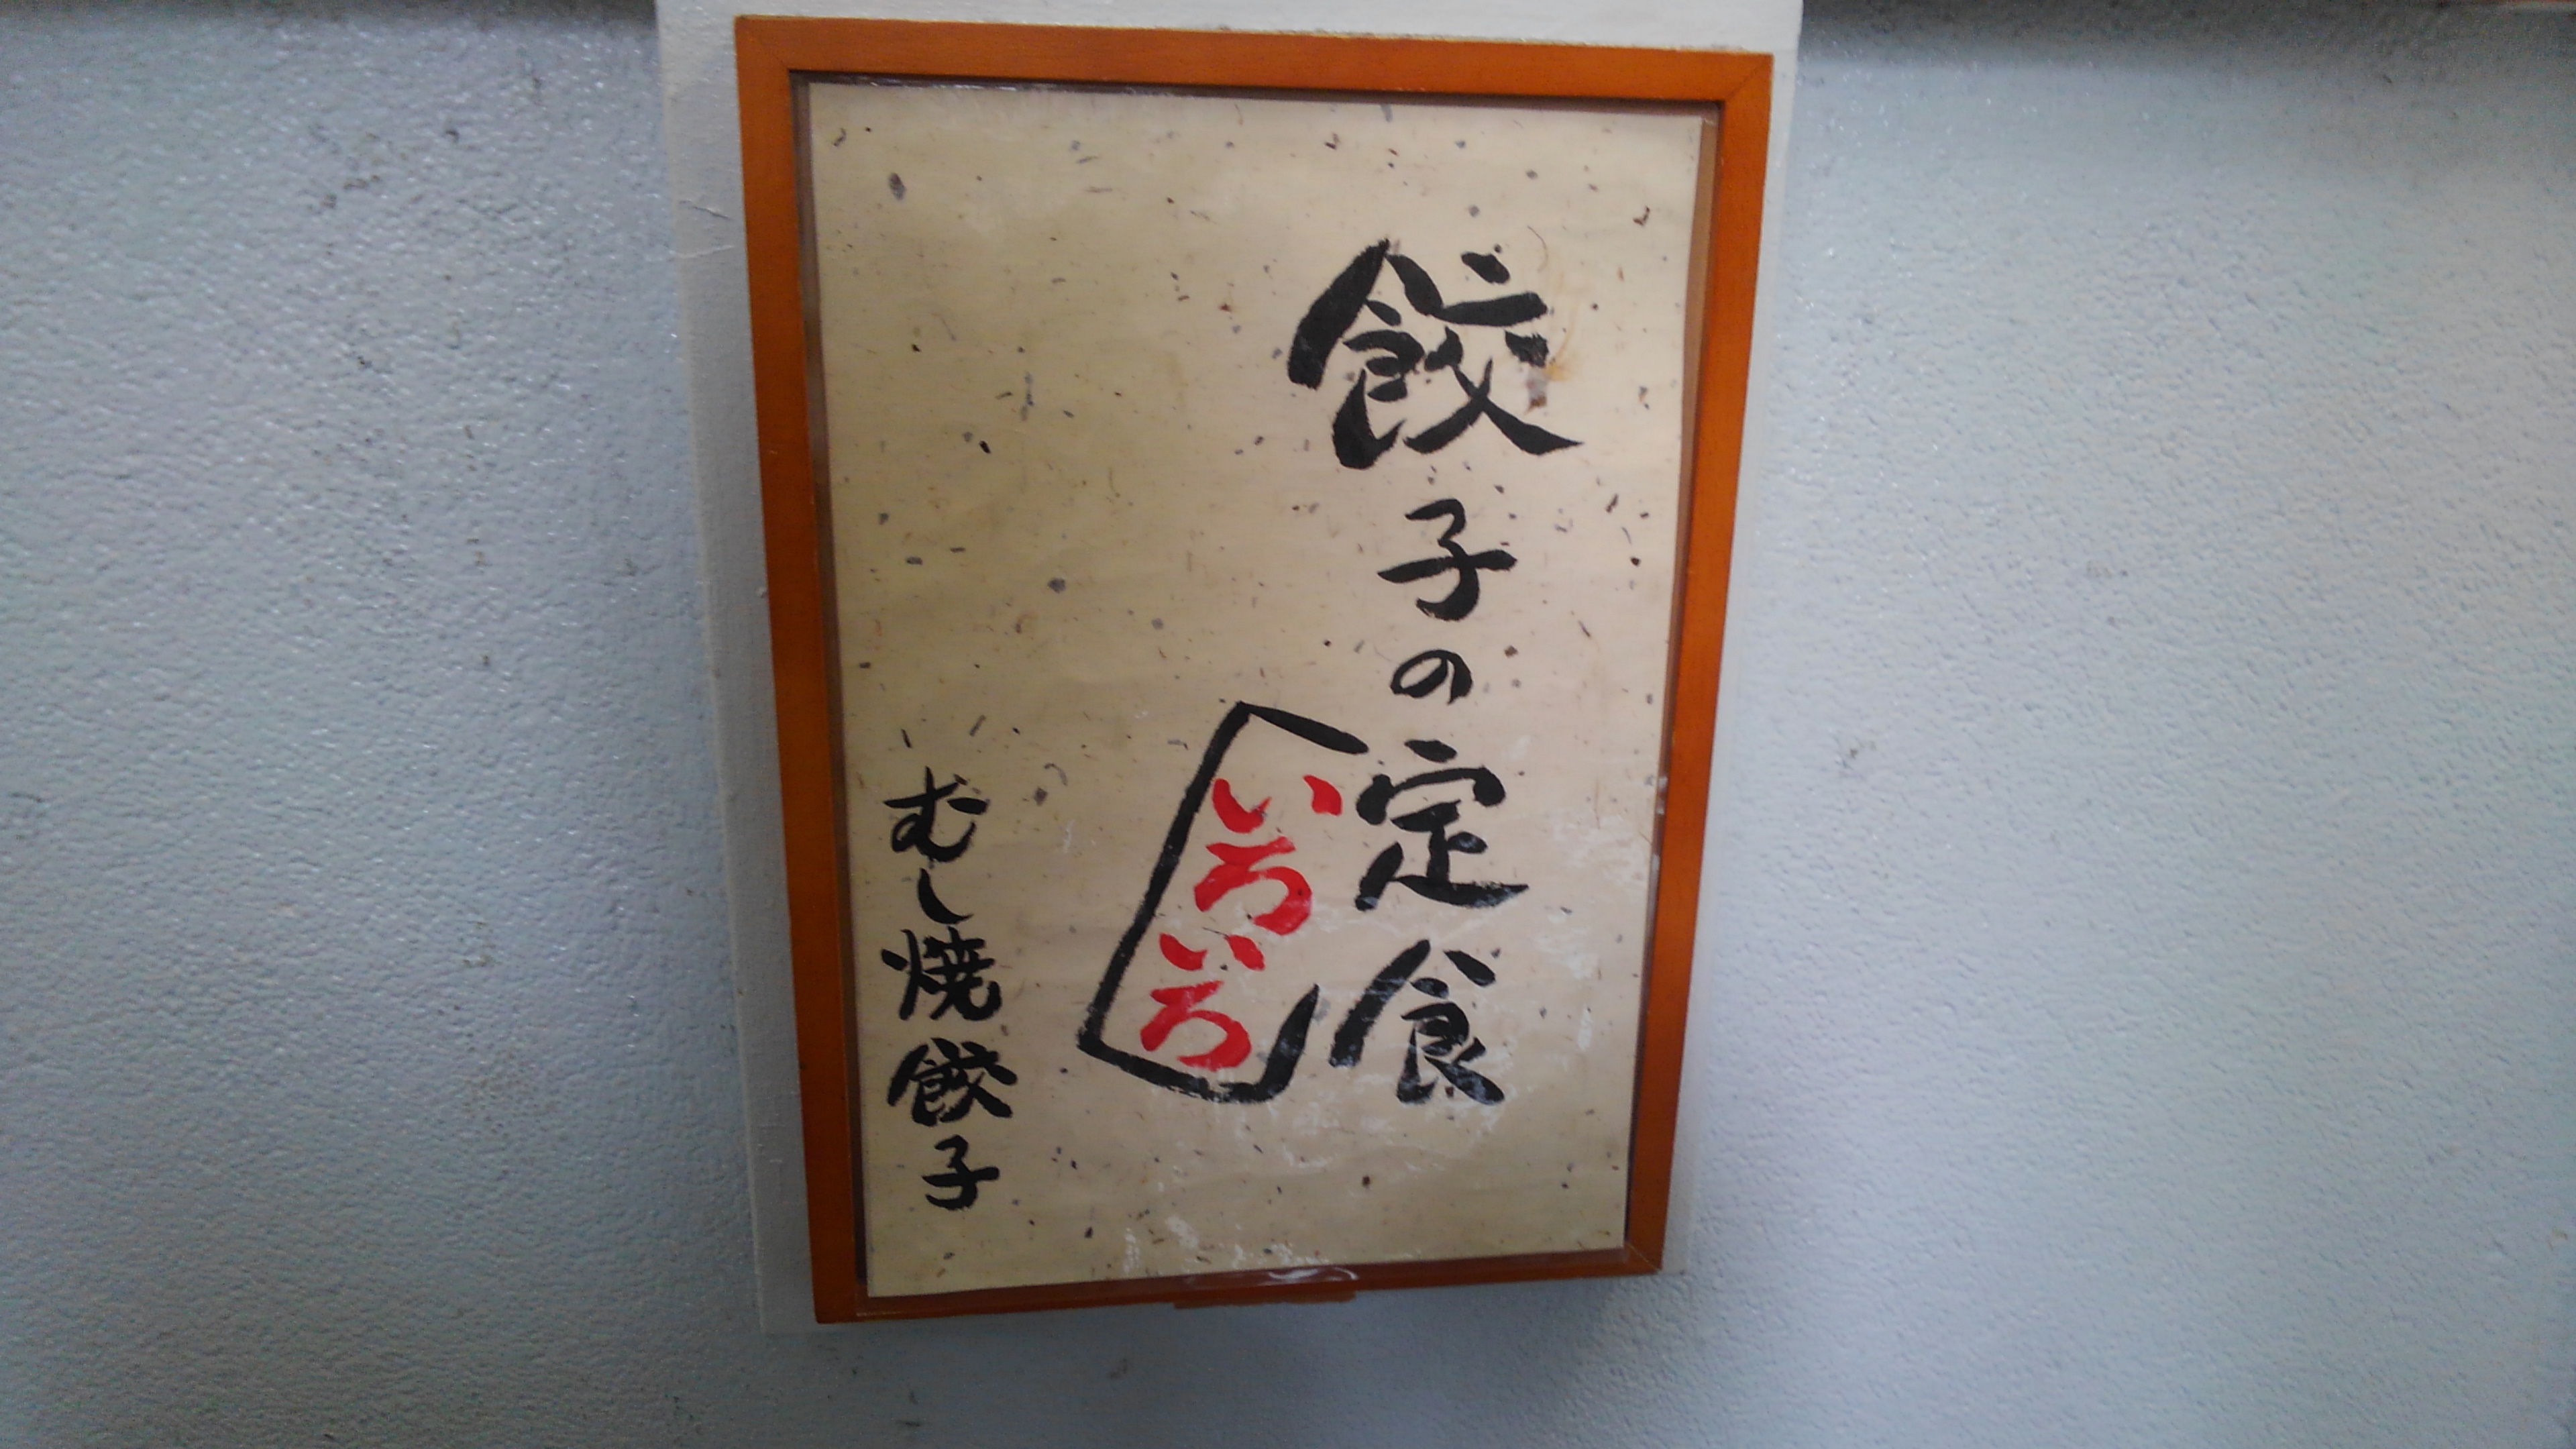 餃子の定食
いろいろ
むし焼餃子